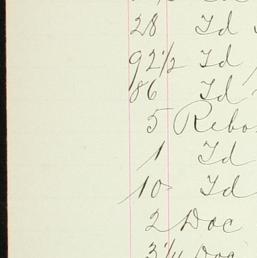 28 Id
92 1/2 Id
86 Id
5 Rebo
1 Id
10 Id
2 Doc
3 1/4 Doc